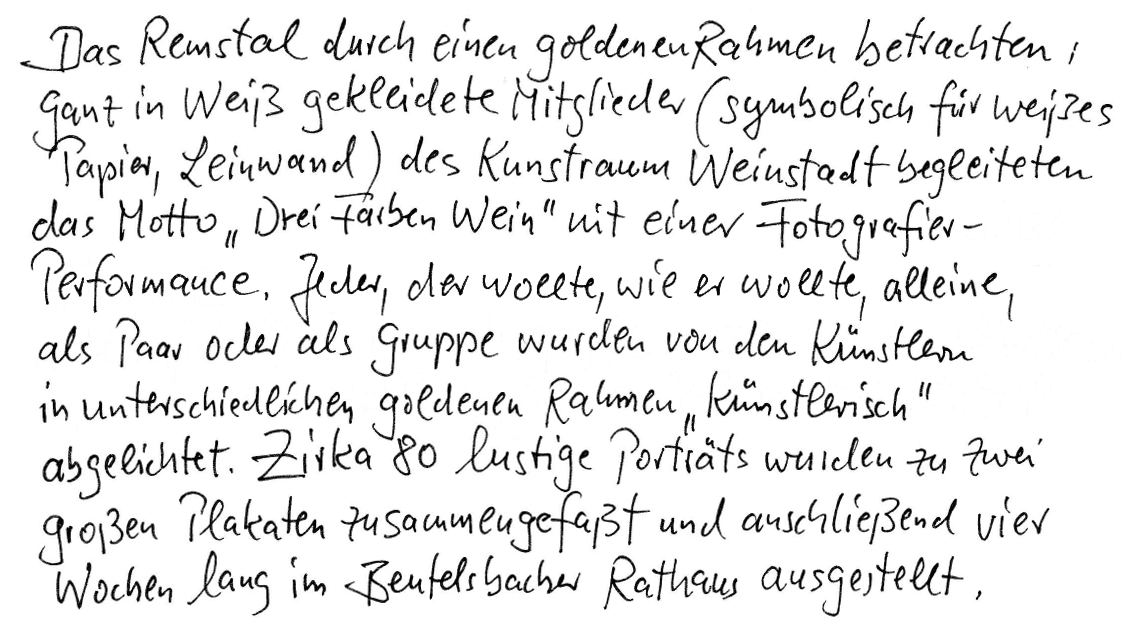 Das Remstal durch einen goldenen Rahmen betrachten;
Ganz in Weiß gekleidete Mitglieder (symbolisch für weißes
Papier, Leinwand) des Kunstraum Weinstadt begleiteten
das Motto „Drei Farben Wein" mit einer Fotografier-
Performance. Jeder, der wollte, wie er wollte, alleine,
als Paar oder als Gruppe wurden von den Künstlern
in unterschiedlichen goldenen Rahmen „künstlerisch"
abgelichtet. Zirka 80 lustige Porträts wurden zu zwei
großen Plakaten zusammengefaßt und anschließend vier
Wochen lang im Beutelsbacher Rathaus ausgestellt.